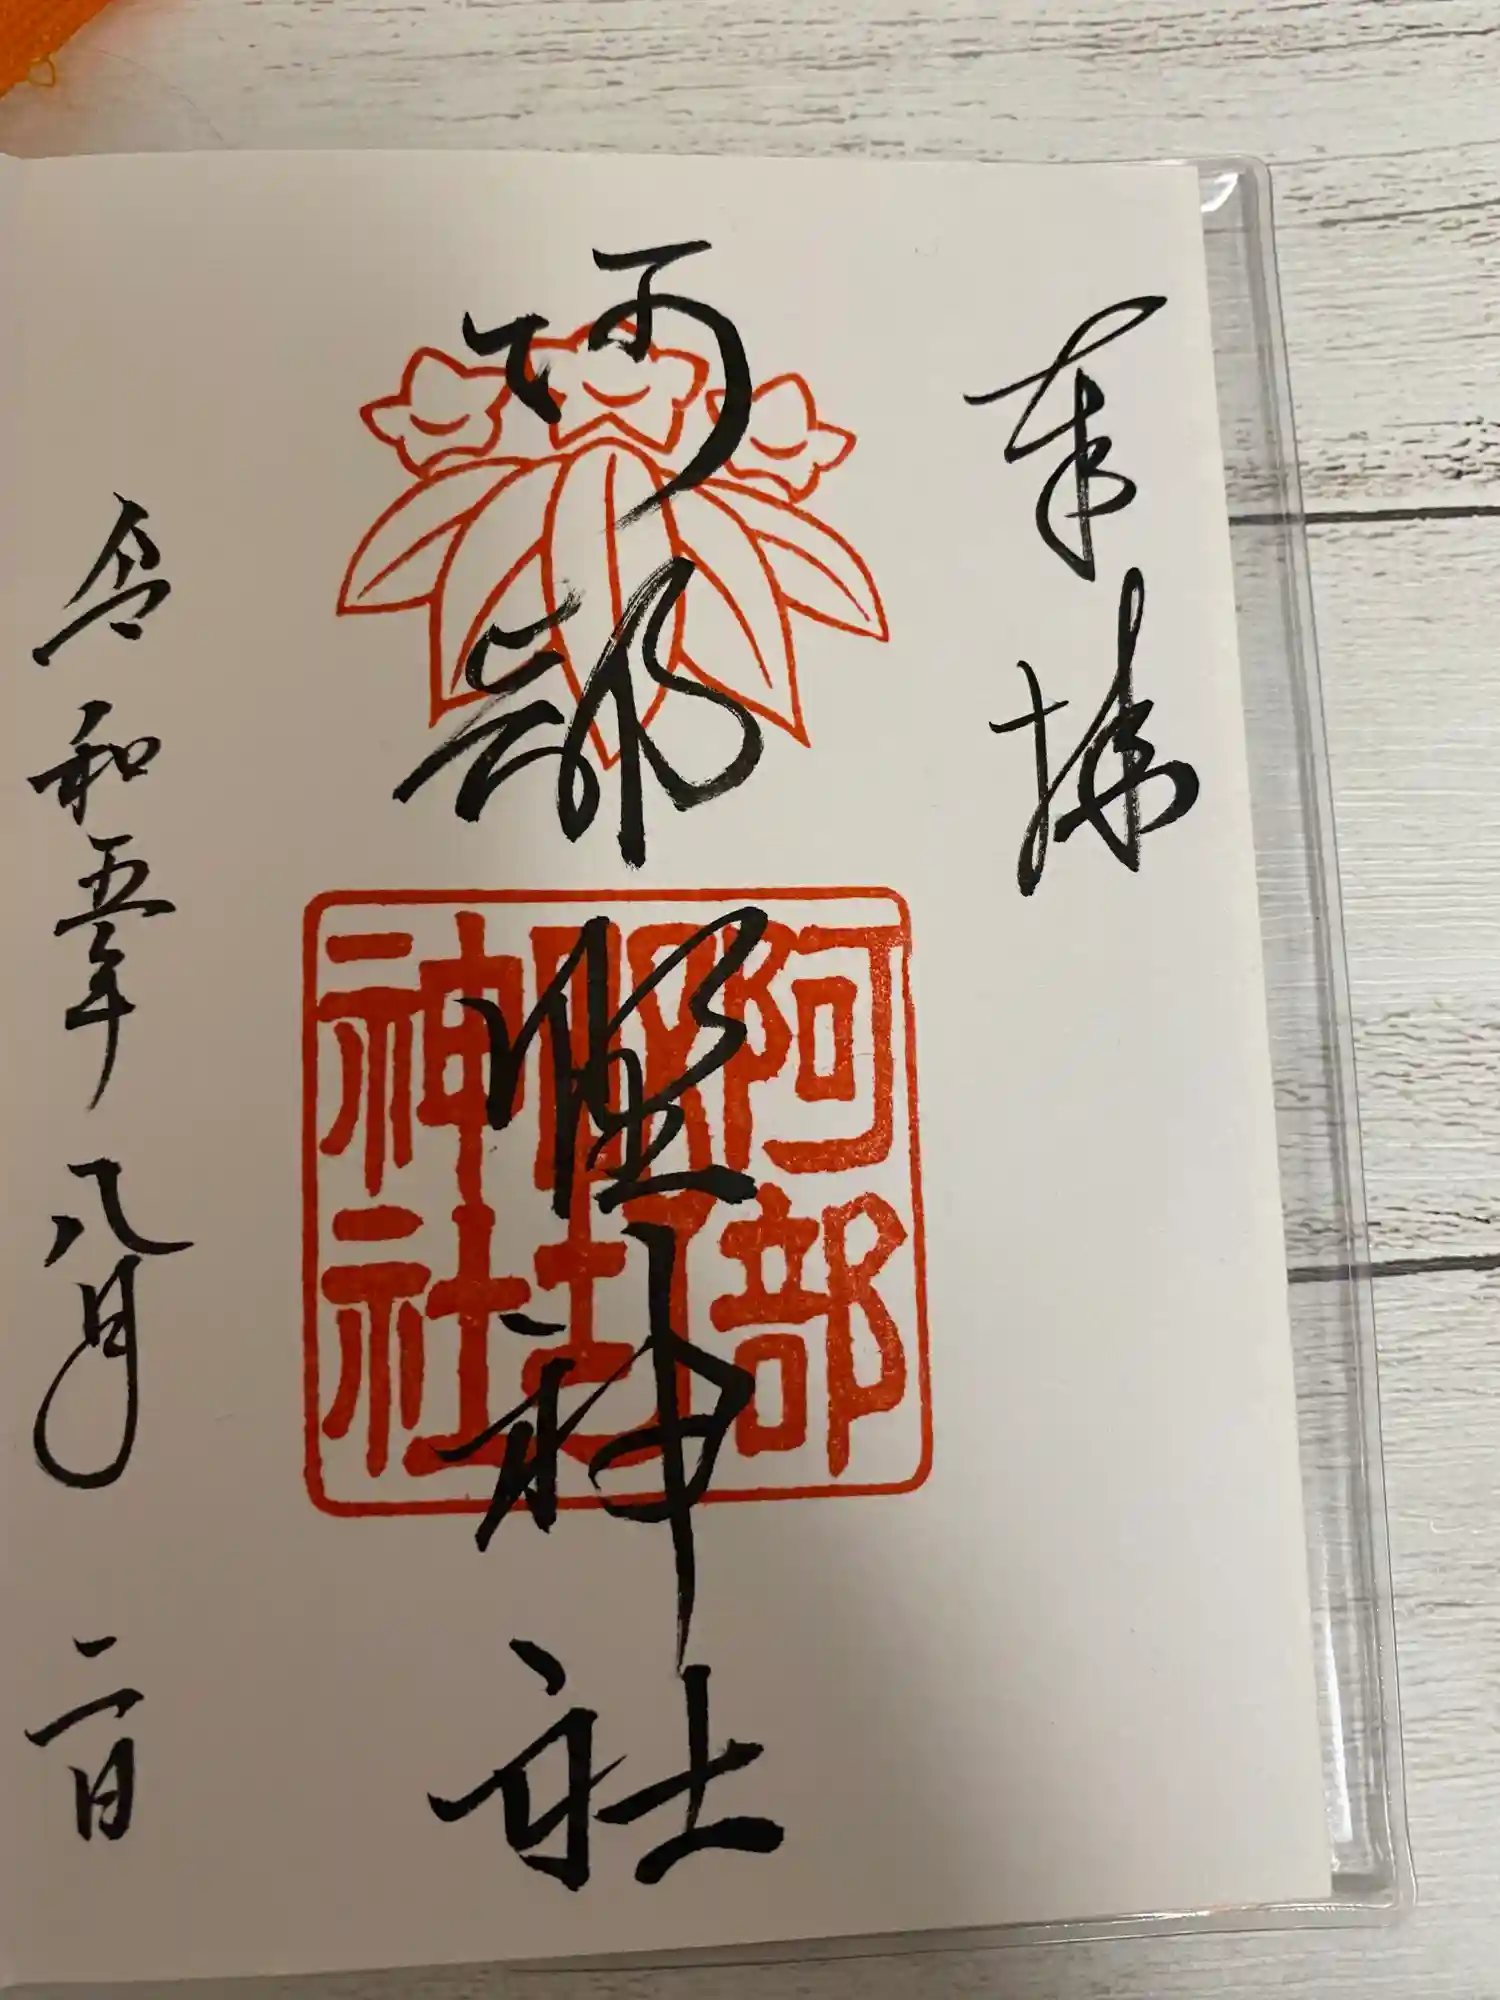 奉拝
阿部野神社
阿部野神社
令和五年八月二日